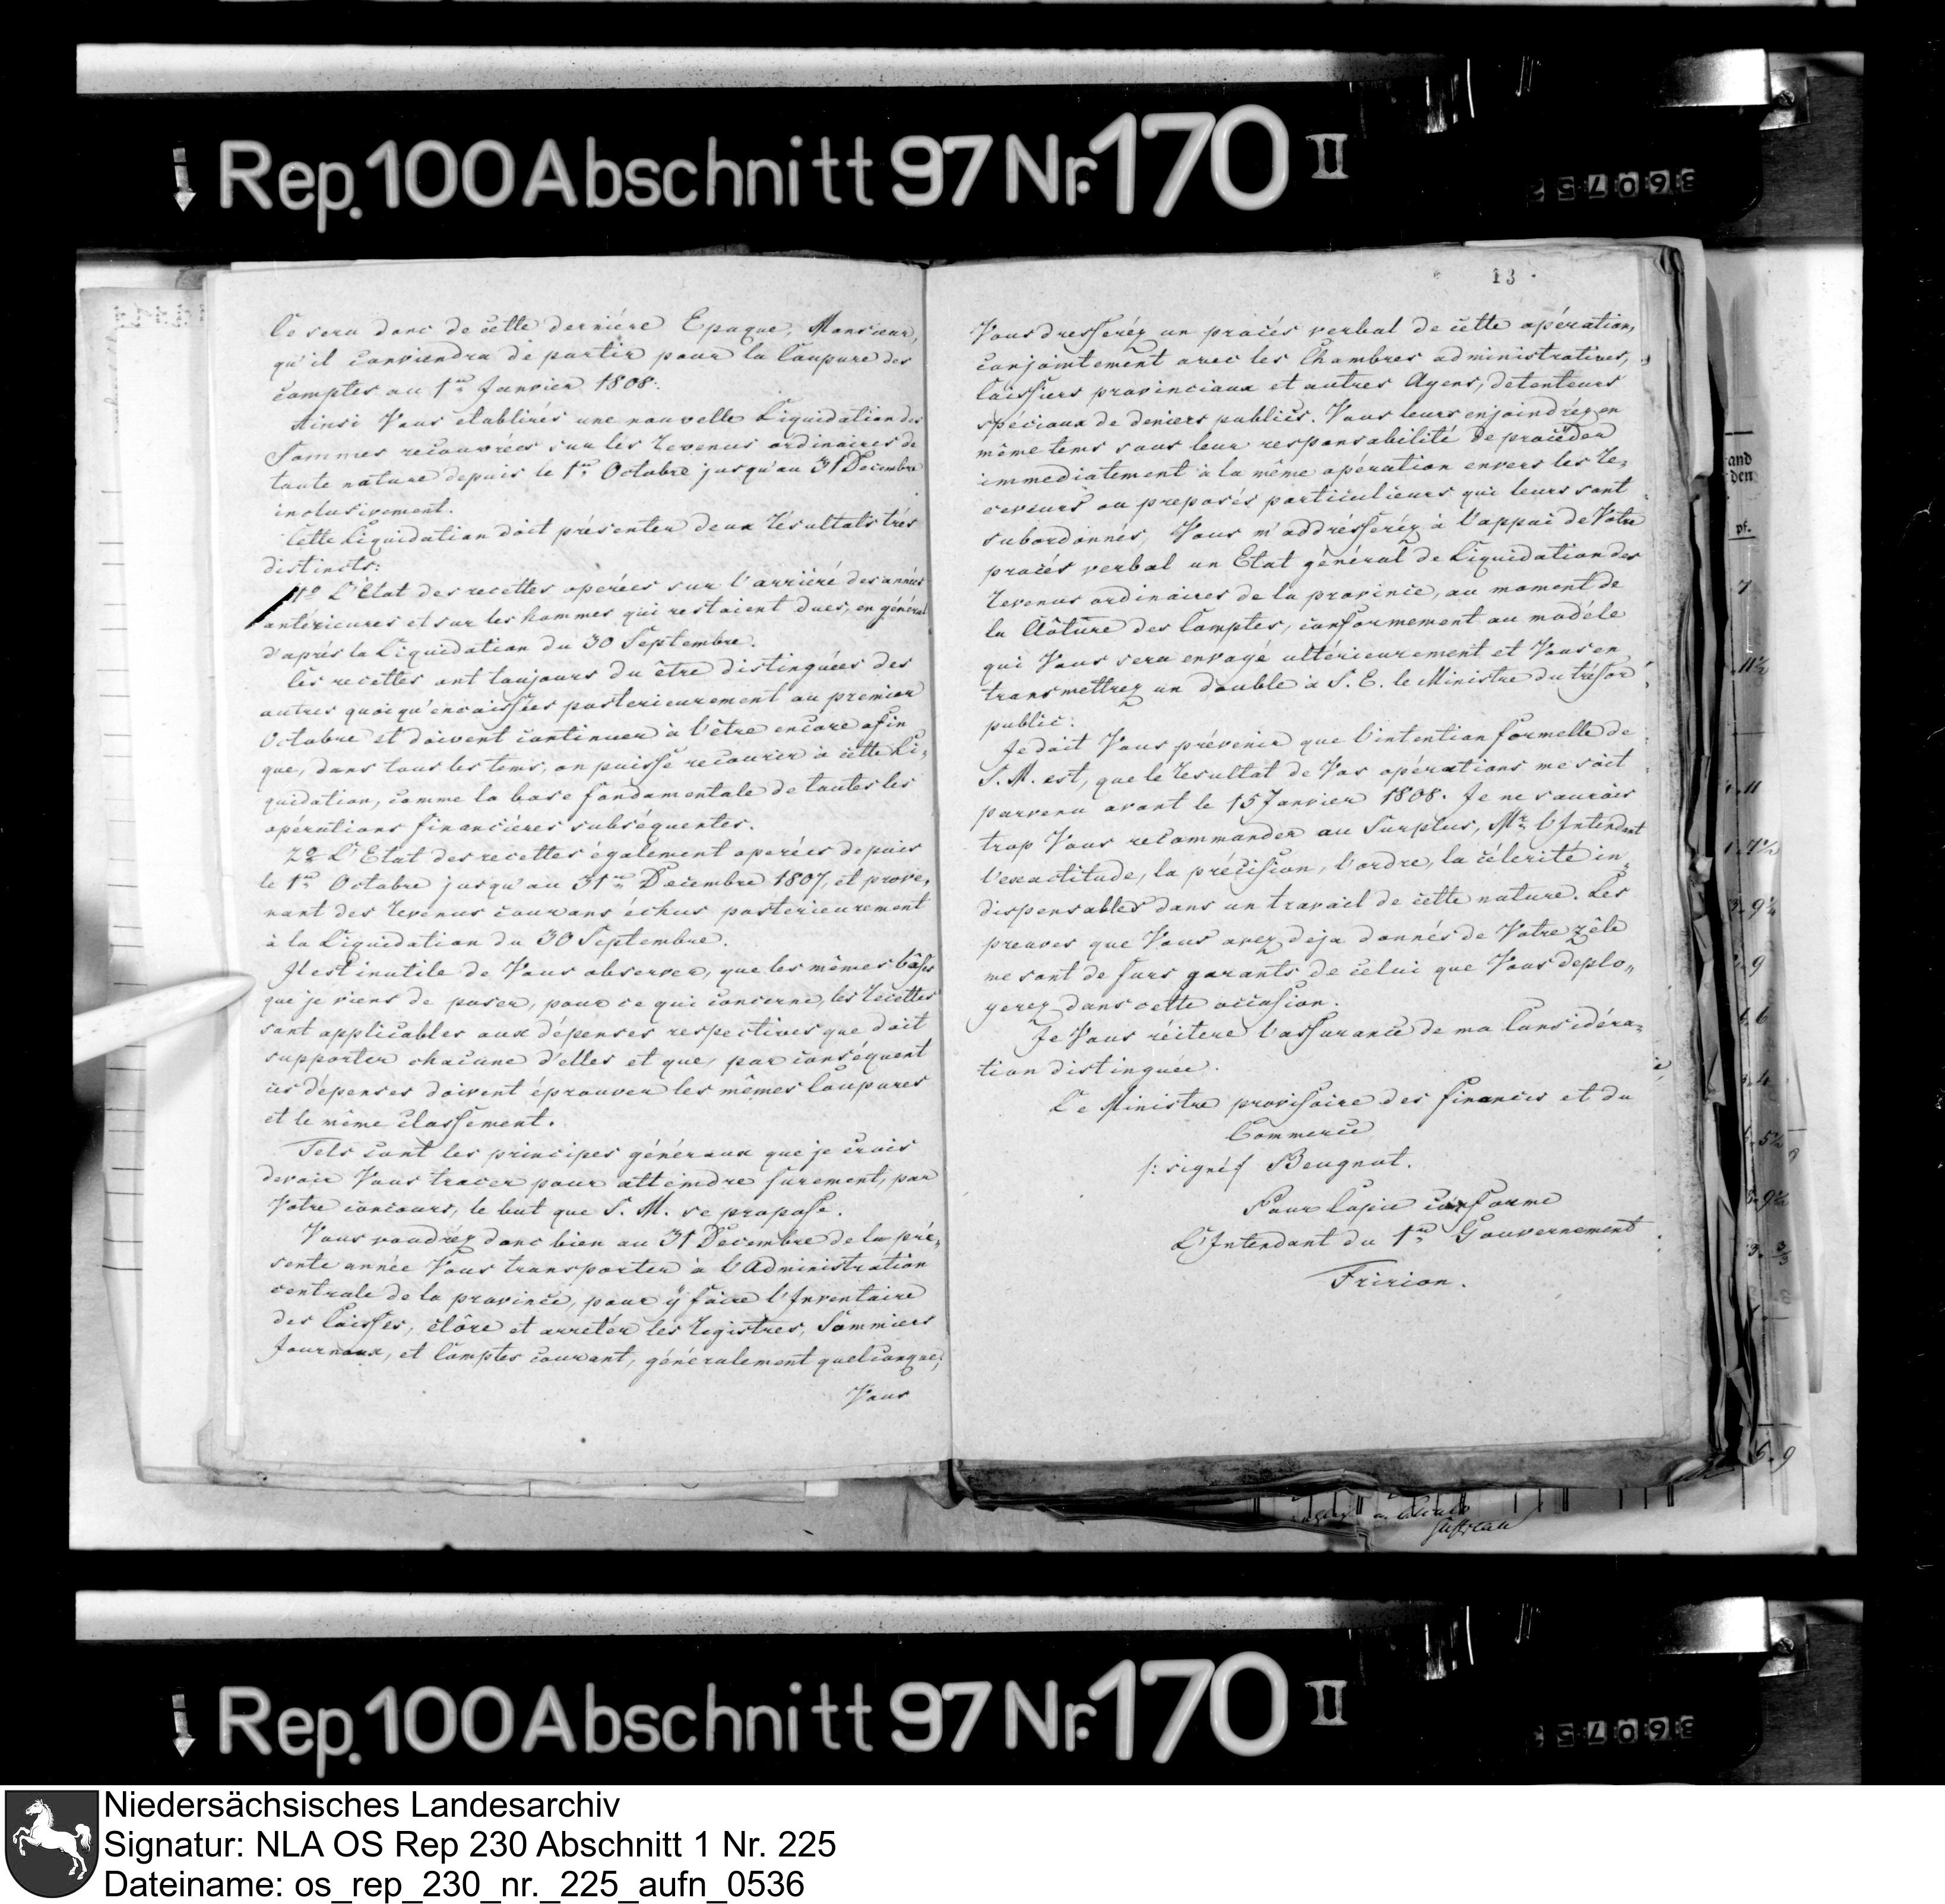 Rep. 100 Abschnitt 97 Nr. 170 II
Ce sera donc de cette derniére Epoque, Monsieur,
qu'il conviendra de partir pour la Coupure des
comptes au 1er Janvier 1808.
Ainsi Vous etablirés une nouvelle Liquidation des
Sommes recouvrées sur les revenus ordinaires de
toute nature depuis le 1er Octobre jusqu'au 31 Decembre
inclusivement.
Cette Liquidation doit présenter deux résultats très
distincts:
1o L'Etat des recettes operées sur l'arriéré des années
antérieures et sur les sommes qui restoient dues, en général
d'après la Liquidation du 30 Septembre.
Ces recettes ont toujours du être distinguées des
autres quoiqu'encaissées posterieurement au premier
Octobre et doivent continuer à l'être encore afin
que, dans tous les tems, on puisse recourir à cette Li-
quidation, comme la base fondamentale de toutes les
opérations financiéres subséquentes.
2o L'Etat des recettes également operées depuis
le 1er Octobre jusqu'au 31 Decembre 1807, et prove-
nant des revenus courans échus posterieurement
à la Liquidation du 30 Septembre.
Il est inutile de Vous observer, que les mêmes bâses
que je viens de poser, pour ce qui concerne, les recettes
sont applicables aux dépenses respectives que doit
supporter chacune d'elles et que, par conséquent
ces dépenses doivent éprouver les mêmes Coupures
et le même classement.
Tels sont les principes généraux que je crois
devoir Vous tracer pour atteindre surement, par
Votre concours, le but que S. M. se propose.
Vous voudrez donc bien au 31 Decembre de la pré-
sente année Vous transporter à l'Administration
centrale de la province, pour ÿ faire l'Inventaire
des Caisses, clôre et arretér les registres, Sommiers
Journaux, et Comptes courant, généralement quelconque,
Vous
13
Vous dresseréz un procés verbal de cette opération,
conjointement avec les Chambres administratives,
Caissiers provinciaux et autres Agens, detenteurs
spéciaux de deniers publics. Vous leurs enjoindréz en
même tems sous leur responsabilité de proceder
immediatement à la même opération envers les re-
ceveurs ou preposés particulieurs qui leurs sont
subordonnés, Vous m'addrésseréz à l'appui de Votre
procés verbal un Etat général de Liquidation des
revenus ordinaires de la province, au moment de
la Clôture des Comptes, conformement au modéle
qui Vous sera envoyé ultérieurement et Vous en
transmettrez un double à S. E. le Ministre du trésor
public.
Je doit Vous prévenir que l'intention formelle de
S. M. est, que le resultat de Vos opérations me soit
parvenu avant le 15 Janvier 1808. Je ne saurois
trop Vous recommander au Surplus, Mr l'Intendant
l'exactitude, la précision, l'ordre, la célerité in-
dispensables dans un travail de cette nature. Les
preuves que Vous avez deja donnés de Votre zêle
me sont de surs garants de celui que Vous deplo-
yerez dans cette occasion.
Je Vous réitere l'assurance de ma Considéra-
tion distinguée.
Le Ministre provisoire des finances et du
Commerce
/: signé/ Beugnot.
Pour Copie conforme
L'Intendant du 1er Gouvernement
Fririon.
Rep. 100 Abschnitt 97 Nr. 170 II
Niedersächsisches Landesarchiv
Signatur: NLA OS Rep 230 Abschnitt 1 Nr. 225
Dateiname: os_rep_230_nr._225_aufn_0536